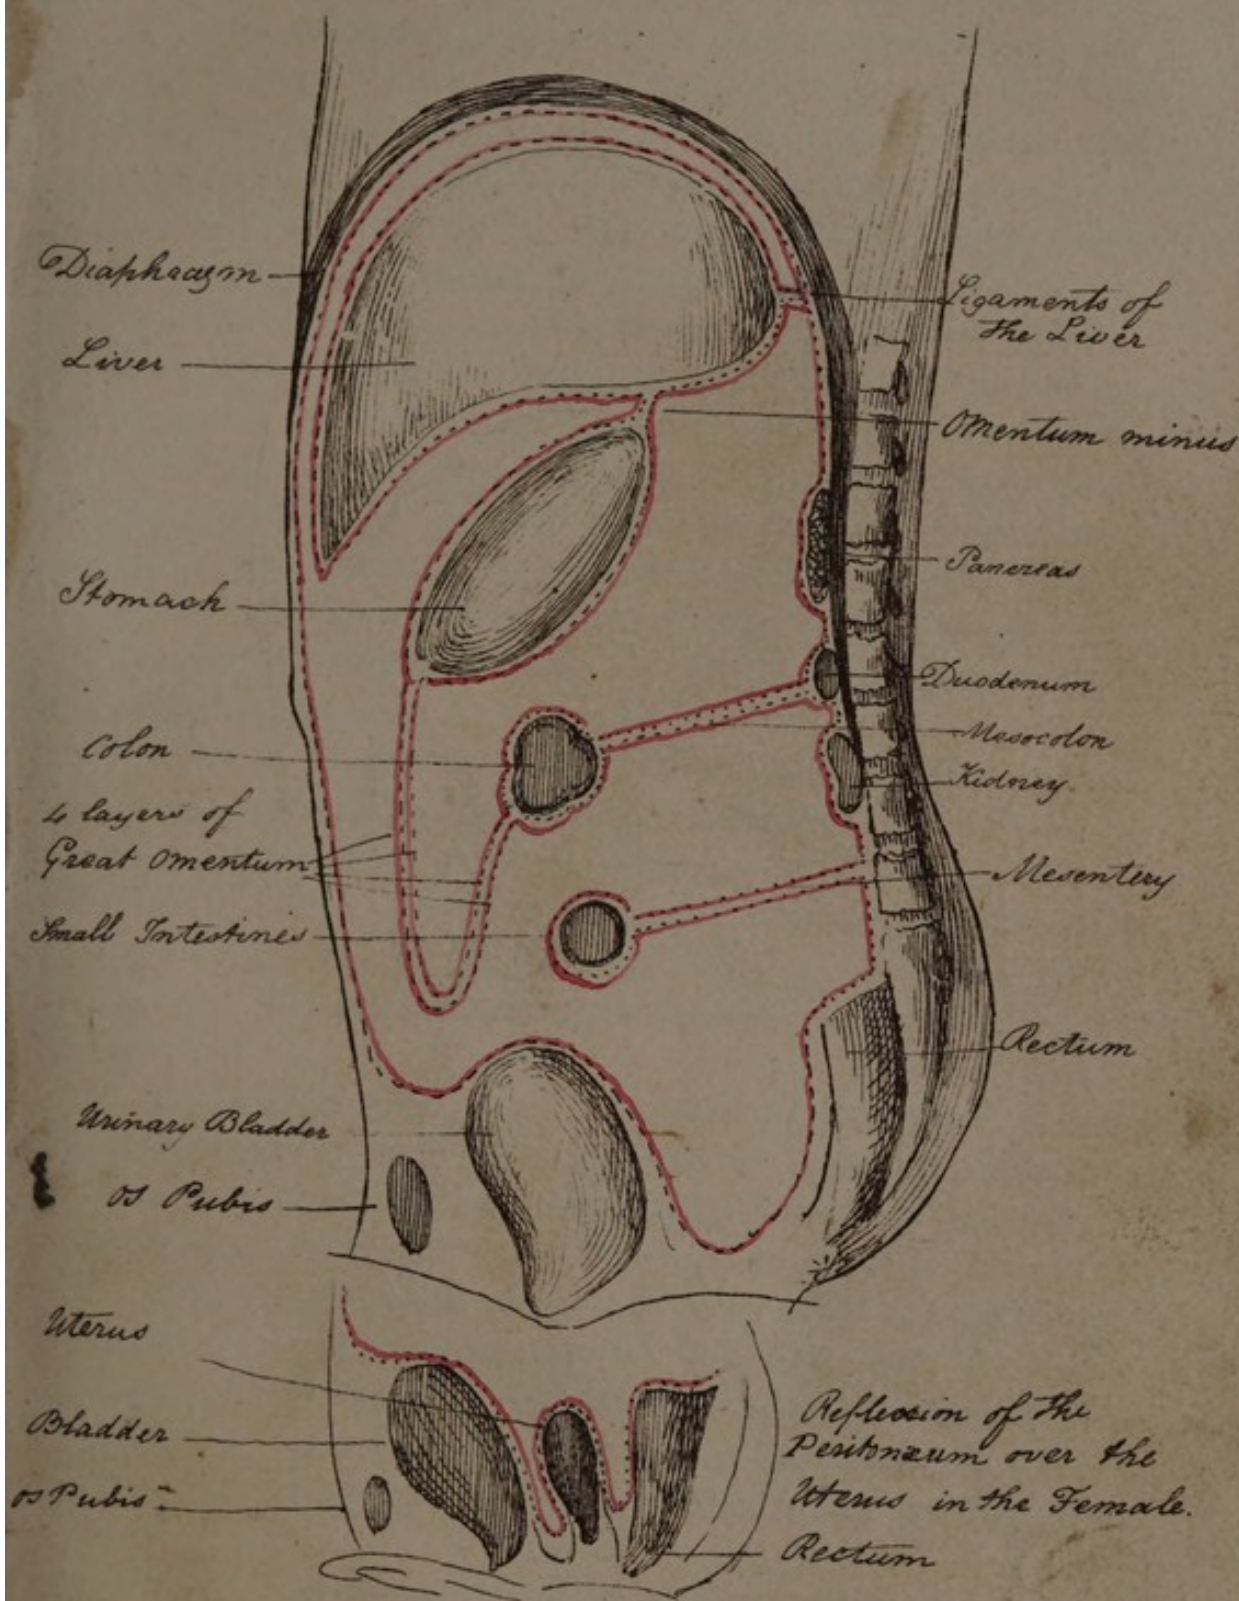 Diaphragm
Liver
Stomach
Colon
4 layers of
Great Omentum
Small Intestines
Urinary Bladder
os Pubis
Uterus
Bladder
os Pubis
Ligaments of
the Liver
Omentum minus
Pancreas
Duodenum
Mesocolon
Kidney
Mesentery
Rectum
Reflexion of the
Peritonæum over the
Uterus in the Female.
Rectum